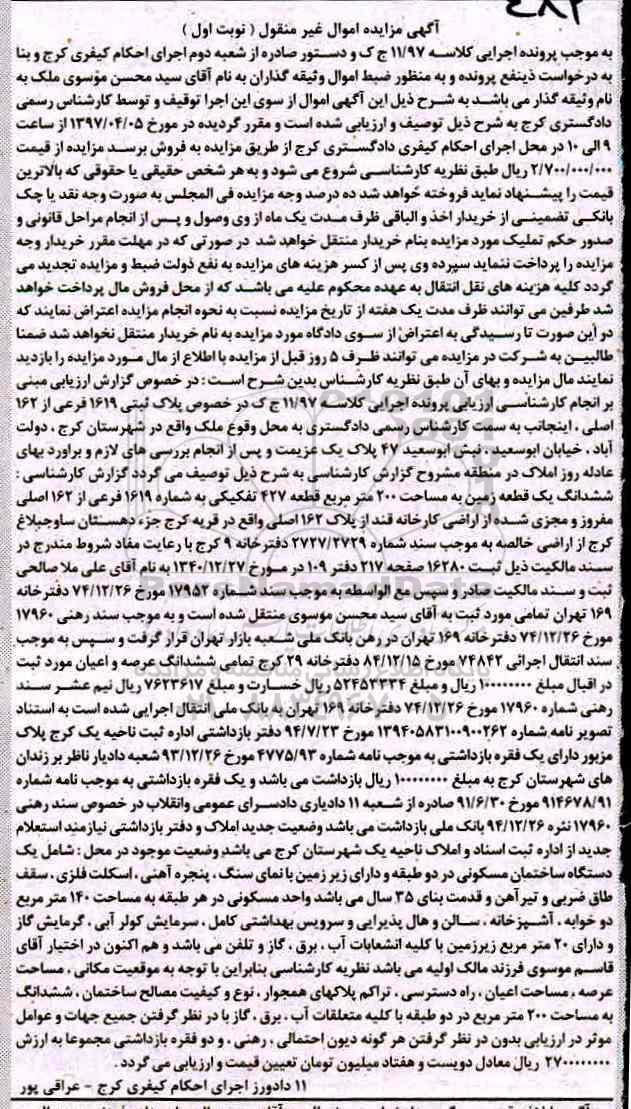 ۴۸۲
آگهی مزایده اموال غیر منقول ( نوبت اول )
به موجب پرونده اجرایی کلاسه ۱۱/۹۷ ج ک و دستور صادره از شعبه دوم اجرای احکام کیفری کرج و بنا
به درخواست ذینفع پرونده و به منظور ضبط اموال وثیقه گذاران به نام آقای سید محسن موسوی ملک به
نام وثیقه گذار می باشد به شرح ذیل این آگهی اموال از سوی این اجرا توقیف و توسط کارشناس رسمی
دادگستری کرج به شرح ذیل توصیف و ارزیابی شده است و مقرر گردیده در مورخ ۱۳۹۷/۰۴/۰۵ از ساعت
۹ الی ۱۰ در محل اجرای احکام کیفری دادگستری کرج از طریق مزایده به فروش برسد مزایده از قیمت
۲/۷۰۰/۰۰۰/۰۰۰ ریال طبق نظریه کارشناسی شروع می شود و به هر شخص حقیقی یا حقوقی که بالاترین
قیمت را پیشنهاد نماید فروخته خواهد شد ده درصد وجه مزایده فی المجلس به صورت وجه نقد یا چک
بانکی تضمینی از خریدار اخذ و الباقی ظرف مدت یک ماه از وی وصول و پس از انجام مراحل قانونی و
صدور حکم تملیک مورد مزایده بنام خریدار منتقل خواهد شد در صورتی که در مهلت مقرر خریدار وجه
مزایده را پرداخت ننماید سپرده وی پس از کسر هزینه های مزایده به نفع دولت ضبط و مزایده تجدید می
گردد کلیه هزینه های نقل انتقال به عهده محکوم علیه می باشد که از محل فروش مال پرداخت خواهد
شد طرفین می توانند ظرف مدت یک هفته از تاریخ مزایده نسبت به نحوه انجام مزایده اعتراض نمایند که
در این صورت تا رسیدگی به اعتراض از سوی دادگاه مورد مزایده به نام خریدار منتقل نخواهد شد ضمنا
طالبین به شرکت در مزایده می توانند ظرف ۵ روز قبل از مزایده با اطلاع از مال مورد مزایده را بازدید
نمایند مال مزایده و بهای آن طبق نظریه کارشناس بدین شرح است : در خصوص گزارش ارزیابی مبنی
بر انجام کارشناسی ارزیابی پرونده اجرایی کلاسه ۱۱/۹۷ ج ک در خصوص پلاک ثبتی ۱۶۱۹ فرعی از ۱۶۲
اصلی ، اینجانب به سمت کارشناس رسمی دادگستری به محل وقوع ملک واقع در شهرستان کرج ، دولت
آباد ، خیابان ابوسعید ، نبش ابوسعید ۴۷ پلاک یک عزیمت و پس از انجام بررسی های لازم و براورد بهای
عادله روز املاک در منطقه مشروح گزارش کارشناسی به شرح ذیل توصیف می گردد گزارش کارشناسی :
ششدانگ یک قطعه زمین به مساحت ۲۰۰ متر مربع قطعه ۴۲۷ تفکیکی به شماره ۱۶۱۹ فرعی از ۱۶۲ اصلی
مفروز و مجزی شده از اراضی کارخانه قند از پلاک ۱۶۲ اصلی واقع در قریه کرج جزء دهستان ساوجبلاغ
کرج از اراضی خالصه به موجب سند شماره ۲۷۲۷/۲۷۲۹ دفترخانه ۹ کرج با رعایت مفاد شروط مندرج در
سند مالکیت ذیل ثبت ۱۶۲۸۰ صفحه ۲۱۷ دفتر ۱۰۹ در مورخ ۱۳۴۰/۱۲/۲۷ به نام آقای علی ملا صالحی
ثبت و سند مالکیت صادر و سپس مع الواسطه به موجب سند شماره ۱۷۹۵۲ مورخ ۷۴/۱۲/۲۶ دفترخانه
۱۶۹ تهران تمامی مورد ثبت به آقای سید محسن موسوی منتقل شده است و به موجب سند رهنی ۱۷۹۶۰
مورخ ۷۴/۱۲/۲۶ دفترخانه ۱۶۹ تهران در رهن بانک ملی شعبه بازار تهران قرار گرفت و سپس به موجب
سند انتقال اجرائی ۷۴۸۴۲ مورخ ۸۴/۱۲/۱۵ دفترخانه ۲۹ کرج تمامی ششدانگ عرصه و اعیان مورد ثبت
در اقبال مبلغ ۱۰۰۰۰۰۰۰۰ ریال و مبلغ ۵۲۴۵۲۳۳۴ ریال خسارت و مبلغ ۷۶۲۳۶۱۷ ریال نیم عشر سند
رهنی شماره ۱۷۹۶۰ مورخ ۷۴/۱۲/۲۶ دفترخانه ۱۶۹ تهران به بانک ملی انتقال اجرایی شده است به استناد
تصویر نامه شماره ۱۳۹۴۰۵۸۳۱۰۰۹۰۰۲۶۲ مورخ ۹۴/۷/۲۳ دفتر بازداشتی اداره ثبت ناحیه یک کرج پلاک
مزبور دارای یک فقره بازداشتی به موجب نامه شماره ۴۷۷۵/۹۳ مورخ ۹۳/۱۲/۲۶ شعبه دادیار ناظر بر زندان
های شهرستان کرج به مبلغ ۱۰۰۰۰۰۰۰۰ ریال بازداشت می باشد و یک فقره بازداشتی به موجب نامه شماره
۹۱۴۶۷۸/۹۱ مورخ ۹۱/۶/۳۰ صادره از شعبه ۱۱ دادیاری دادسرای عمومی وانقلاب در خصوص سند رهنی
۱۷۹۶۰ نثره ۹۴/۱۲/۲۶ بانک ملی بازداشت می باشد وضعیت جدید املاک و دفتر بازداشتی نیازمند استعلام
جدید از اداره ثبت اسناد و املاک ناحیه یک شهرستان کرج می باشد وضعیت موجود در محل : شامل یک
دستگاه ساختمان مسکونی در دو طبقه و دارای زیر زمین با نمای سنگ ، پنجره آهنی ، اسکلت فلزی ، سقف
طاق ضربی و تیرآهن و قدمت بنای ۳۵ سال می باشد واحد مسکونی در هر طبقه به مساحت ۱۴۰ متر مربع
دو خوابه ، آشپزخانه ، سالن و هال پذیرایی و سرویس بهداشتی کامل ، سرمایش کولر آبی ، گرمایش گاز
و دارای ۲۰ متر مربع زیرزمین با کلیه انشعابات آب ، برق ، گاز و تلفن می باشد و هم اکنون در اختیار آقای
قاسم موسوی فرزند مالک اولیه می باشد نظریه کارشناسی بنابراین با توجه به موقعیت مکانی ، مساحت
عرصه ، مساحت اعیان ، راه دسترسی ، تراکم پلاکهای همجوار ، نوع و کیفیت مصالح ساختمان ، ششدانگ
به مساحت ۲۰۰ متر مربع در دو طبقه با کلیه متعلقات آب ، برق ، گاز با در نظر گرفتن جمیع جهات و عوامل
موثر در ارزیابی بدون در نظر گرفتن هر گونه دیون احتمالی ، رهنی ، و دو فقره بازداشتی مجموعا به ارزش
۲۷۰۰۰۰۰۰۰۰ ریال معادل دویست و هفتاد میلیون تومان تعیین قیمت و ارزیابی می گردد .
۱۱ دادورز اجرای احکام کیفری کرج - عراقی پور